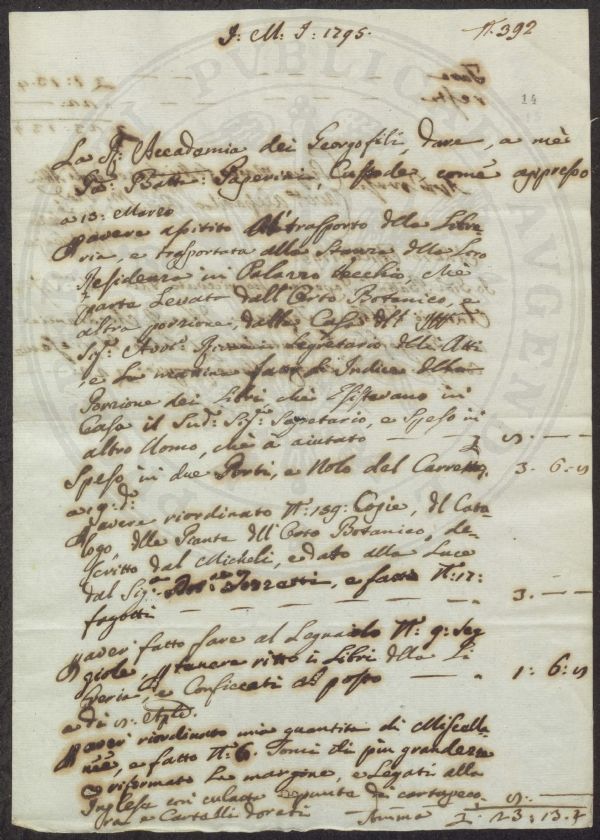 J: M: J: 1795.
N. 392
14
La R: Accademia dei Georgofili, dare, a mè
Gio: Batta: Paperini, Custode, come appresso
a 13: Marzo
P avere assistito All trasporto della Libre
ria, e trasportata alla Stanza della Loro
Residenza in Palazzo vecchio, che
parte Levata dall'Orto Botanico, e
altra porzione, dalla Casa del
Sig: Avvo: Segretario delli Atti
e La fatto l'Indice della
Porzione dei Libri che Esistevano in
Casa il Sud: Sig: Segretario, e Speso in
altro Uomo, che à aiutato — — £ 5. — —
Speso in due Porti, e Nolo del Carretto, 3. 6. 8
a 19: d:
P avere riordinato N: 139: Copie, del Cata
logo delle Piante dell'Orto Botanico, de-
scritto dal Micheli, e dato alla Luce
dal Sig: Dot: Tozzetti, e fatto N: 12:
fagotti — — — — 3. — —
P aver fatto fare al Legnaiolo N: 9: Seg
giole, P tenere ritto i Libri della Li
breria, e Conficcati al posto — — 1: 6: 8
a di 5: Aple.
P aver riordinato una quantità di Miscella
nèe, e fatto N: 6. Tomi di più grandezze
e riformato Le margine, e Legati alla
Inglese con culatta e punte di cartapeco
ra e Cartelli dorati — Somma £: 23: 13. 4